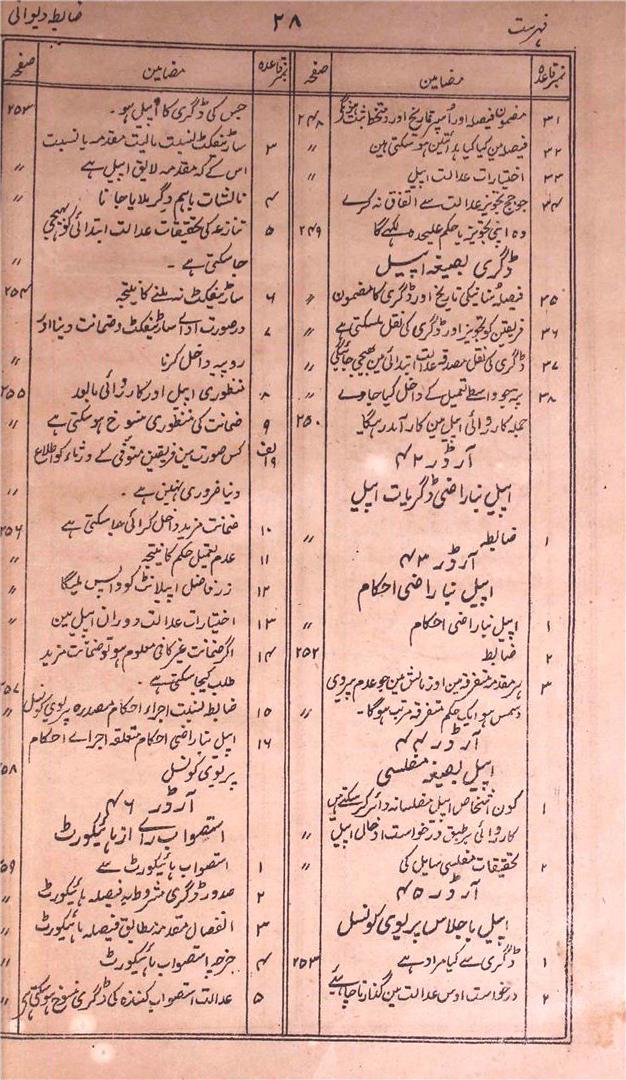 فہرست
۲۸
ضابطہ دیوانی
نمبر قاعدہ
مضامین
صفحہ
۳۱ مضمون فیصلہ اور اُسپر تاریخ اور دستخط ثبت ہونگے ۲۴۸
۳۲ فیصلہ مین کیا کیا ہدائتین ہو سکتی ہین ״
۳۳ اختیارات عدالت اپیل ״
۳۴ جو جج تجویز عدالت سے اتفاق نہ کرے
وہ اپنی تجویز یا حکم علیحدہ لکہے گا ۲۴۹
ڈگری بصیغہ اپیل
۳۵ فیصلہ سُنانیکی تاریخ اور ڈگری کا مضمون ״
۳۶ فریقین کو تجویز اور ڈگری کی نقل ملسکتی ہے ״
۳۷ ڈگری کی نقل مصدقہ عدالت ابتدائی مین بھیجی جائیگی ״
۳۸ پرچہ واسطے تعمیل کے داخل کیا جاوے
جملہ کاروائی اپیل مین کارآمد رہیگا ۲۵۰
آرڈر ۴۲
اپیل بناراضی ڈگریات اپیل
۱ ضابطہ ״
آرڈر ۴۳
اپیل بناراضی احکام
۱ اپیل بناراضی احکام ״
۲ ضابطہ ۲۵۲
۳ ہر مقدمہ متفرقہ مین اور نالش مین جو عدم پیروی
دسمس ہو ایک حکم متفرقہ مرتب ہوگا۔ ״
آرڈر ۴۴
اپیل بصیغہ مفلسی
۱ کون اشخاص اپیل مفلسانہ دائر کر سکتے ہین
کاروائی بر طبق درخواست ادخال اپیل ״
۲ تحقیقات مفلسی سایل کی ״
آرڈر ۴۵
اپیل باجلاس پریوی کونسل
۱ ڈگری سے کیا مراد ہے ۲۵۳
۲ درخواست اوس عدالت مین گذارنا چاہئے
نمبر قاعدہ
مضامین
صفحہ
جس کی ڈگری کا اپیل ہو۔ ۲۵۳
۳ سارٹیفکٹ نسبت مالیت مقدمہ یا نسبت
اس کے کہ مقدمہ لایق اپیل ہے ״
۴ نالشات باہم دگر ملایا جانا ״
۵ تنازعہ کی تحقیقات عدالت ابتدائی کو بھیجی
جا سکتی ہے۔ ״
۶ سارٹیفکٹ نہ ملنے کا نتیجہ ۲۵۴
۷ درصورت ادائے سارٹیفکٹ و ضمانت دینا اور
روپیہ داخل کرنا ״
۸ منظوری اپیل اور کارروائی مابعد ۲۵۵
۹ ضمانت کی منظوری منسوخ ہو سکتی ہے ״
۹ الف کس صورت مین فریقین متوفی کے ورثاء کو اطلاع
دینا ضروری نہین ہے۔ ״
۱۰ ضمانت مزید داخل کرائی جا سکتی ہے ۲۵۶
۱۱ عدم تعمیل حکم کا نتیجہ ״
۱۲ زر فاضل اپیلانٹ کو واپس ملیگا ״
۱۳ اختیارات عدالت دوران اپیل مین ״
۱۴ اگر ضمانت غیر کافی معلوم ہو تو ضمانت مزید
طلب کیجا سکتی ہے۔ ۲۵۷
۱۵ ضابطہ نسبت اجراء احکام مصدرہ پریوی کونسل ״
۱۶ اپیل بناراضی احکام متعلقہ اجراے احکام
پریوی کونسل ۲۵۸
آرڈر ۴۶
استصواب راے از ہائیکورٹ
۱ استصواب ہائیکورٹ سے ۲۵۹
۲ صدور ڈگری مشروط بہ فیصلہ ہائیکورٹ ״
۳ انفصال مقدمہ مطابق فیصلہ ہائیکورٹ ״
۴ خرچہ استصواب ہائیکورٹ ״
۵ عدالت استصواب کنندہ کی ڈگری منسوخ ہو سکتی ہے ״